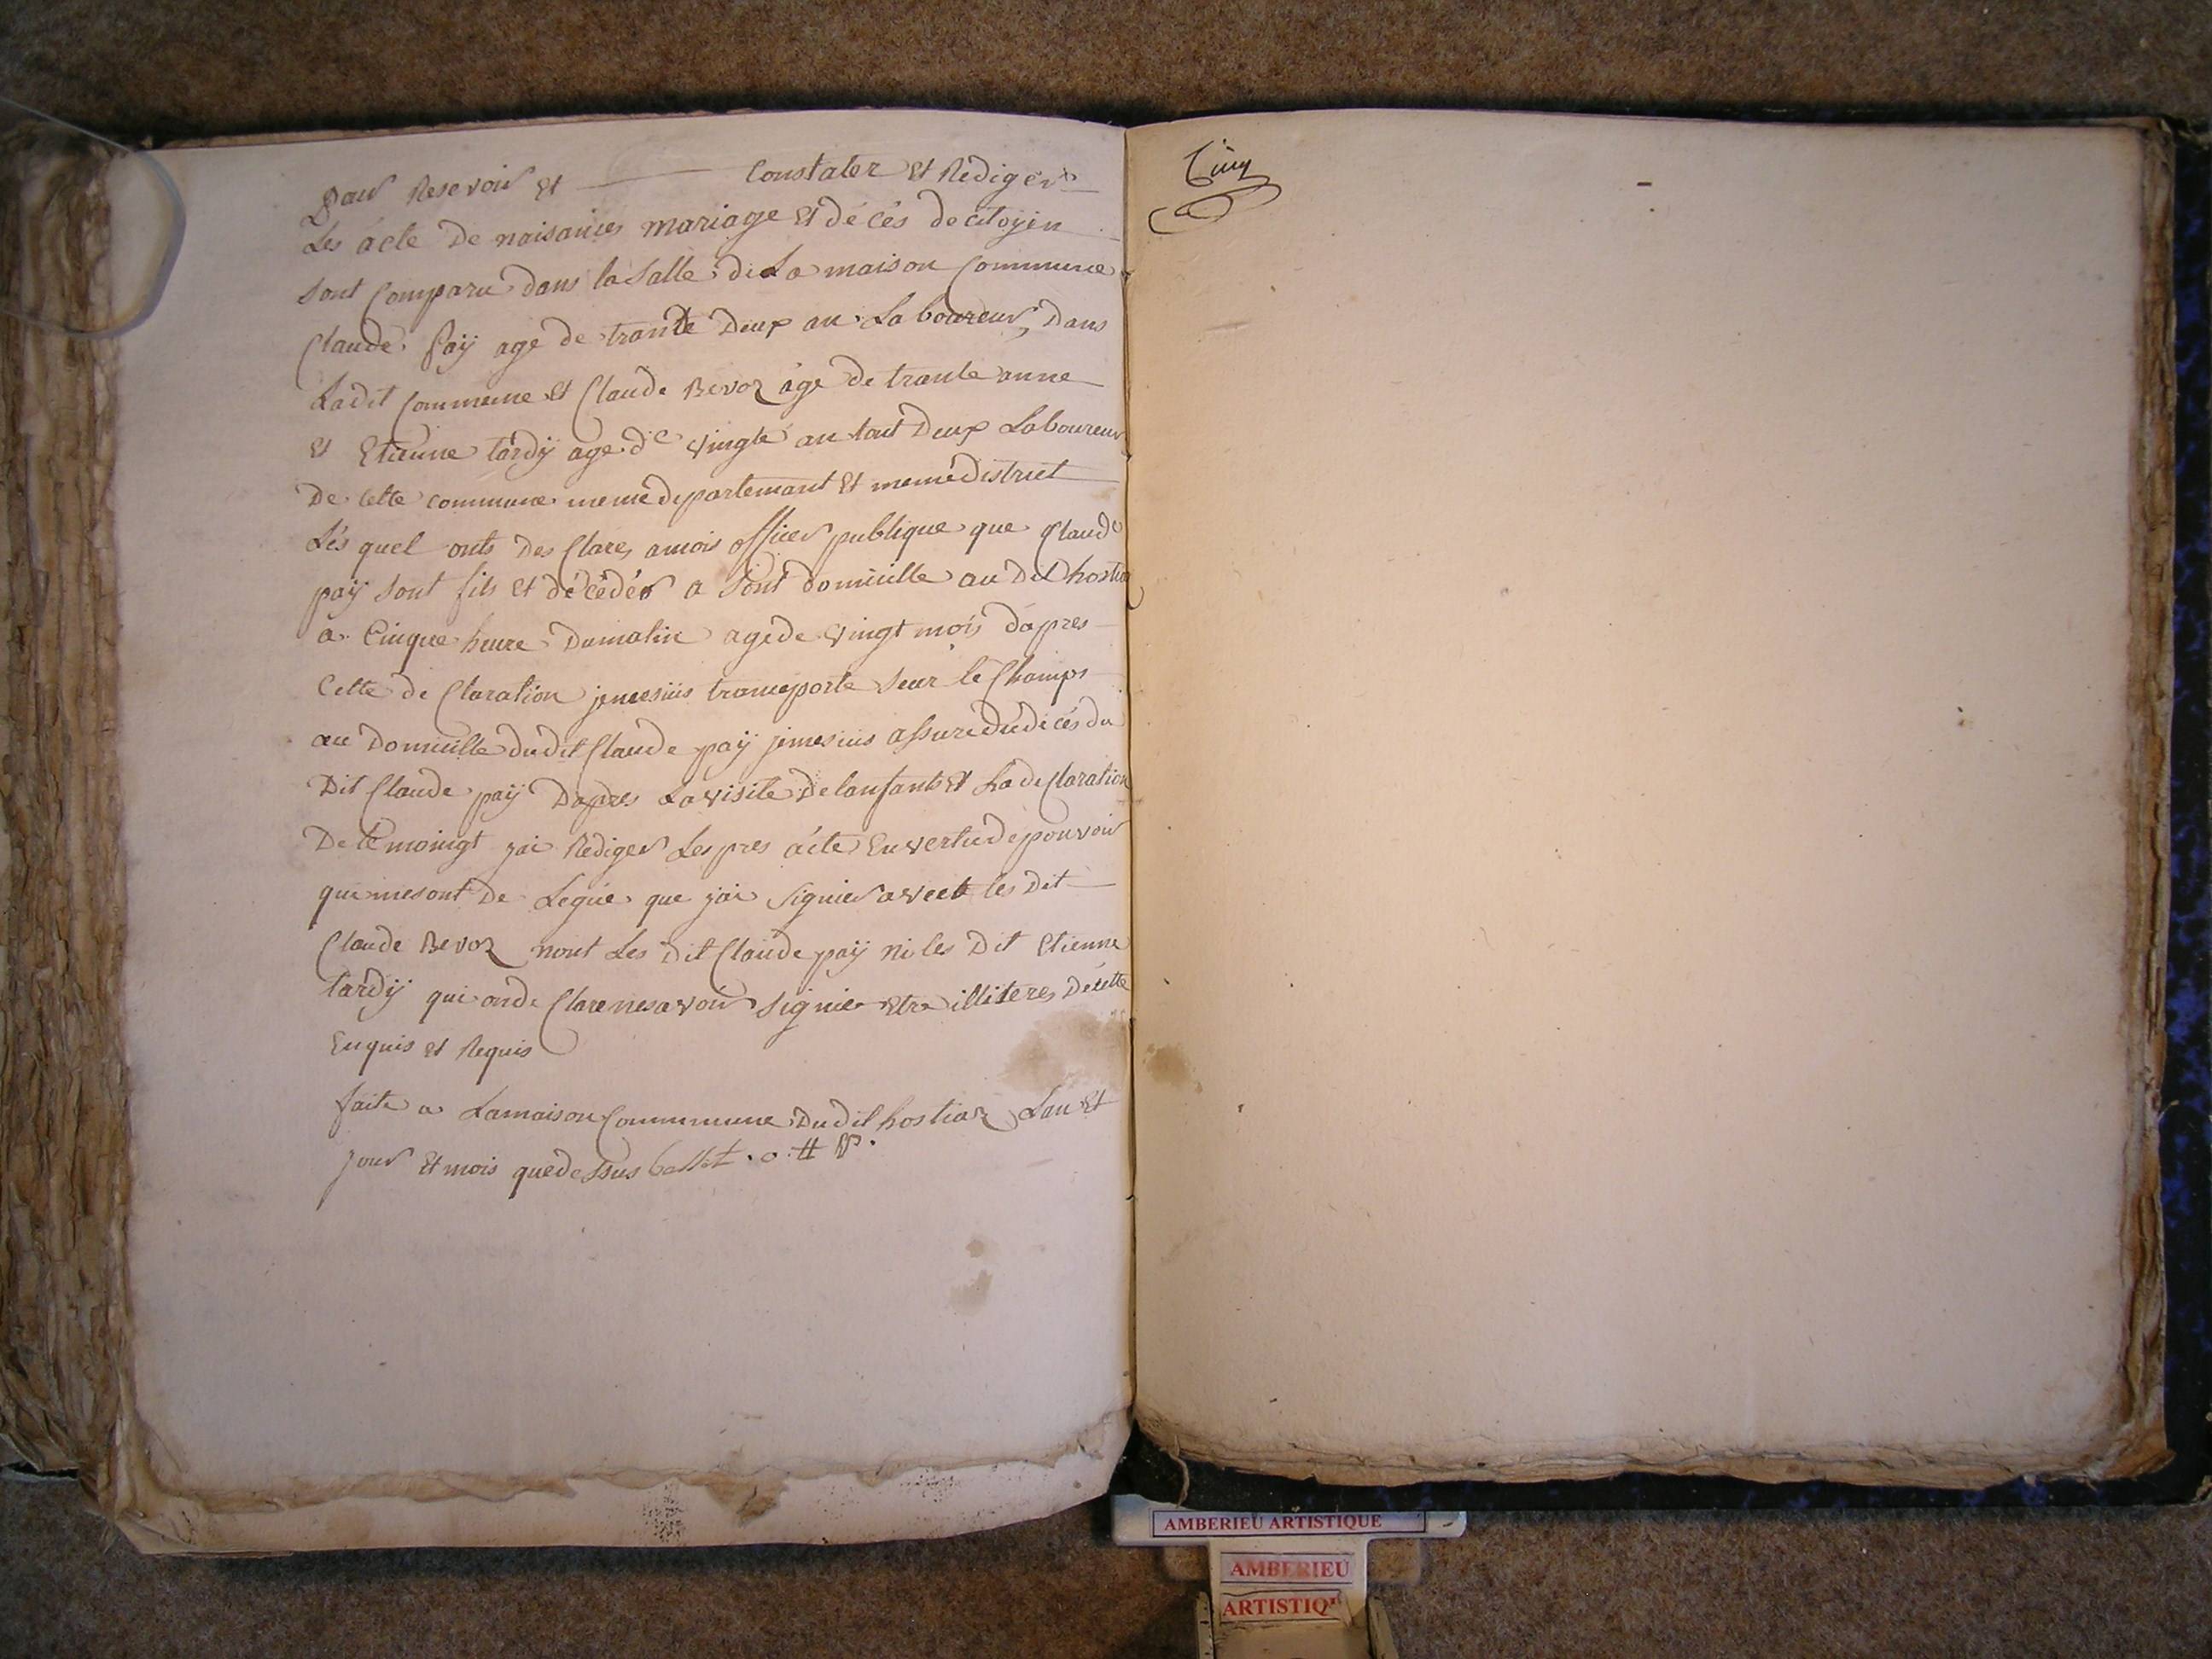 pour Resevoir et Constater et Rediger
Les acte De naisances mariage et déces de citoyen
sont Comparu dans la Salle de La maison Commune
Claude pay age de trante Deux an Laboureur Dans
Ladit Commune et Claude Bevoz age de trante anne
et Etienne tardy age de vingte an tout Deux Laboureur
De cette commune meme departemant et meme district
Les quel onts Des Clares amois officer publique que Claude
pay sont fils et décédér a sont domicille au Dit hostiaz
a Cinque heure Dumatin age de vingt mois dapres
Cette de Claration jemesuis transporte seur le Champs
au Domicille dudit Claude pay jemesuis assure dudeces du
Dit Claude pay Dapres La visite Delanfants et La de Claration
De temoingt jai Rediger Les pres acte En vertu de pouvoir
qui mesont De Legue que jai Signier avect les Dit
Claude Bevoz nont Les Dit Claude pay ni les Dit Etienne
tardy qui onde Clare nesavoir Signier Etre illiteres De cette
Enquis et Requis
faite a Lamaison Commmune Dudit hostiaz Lan et
jour et mois quedessus ballet . o . #
Cinq
AMBERIEU ARTISTIQUE
AMBERIEU
ARTISTIQ